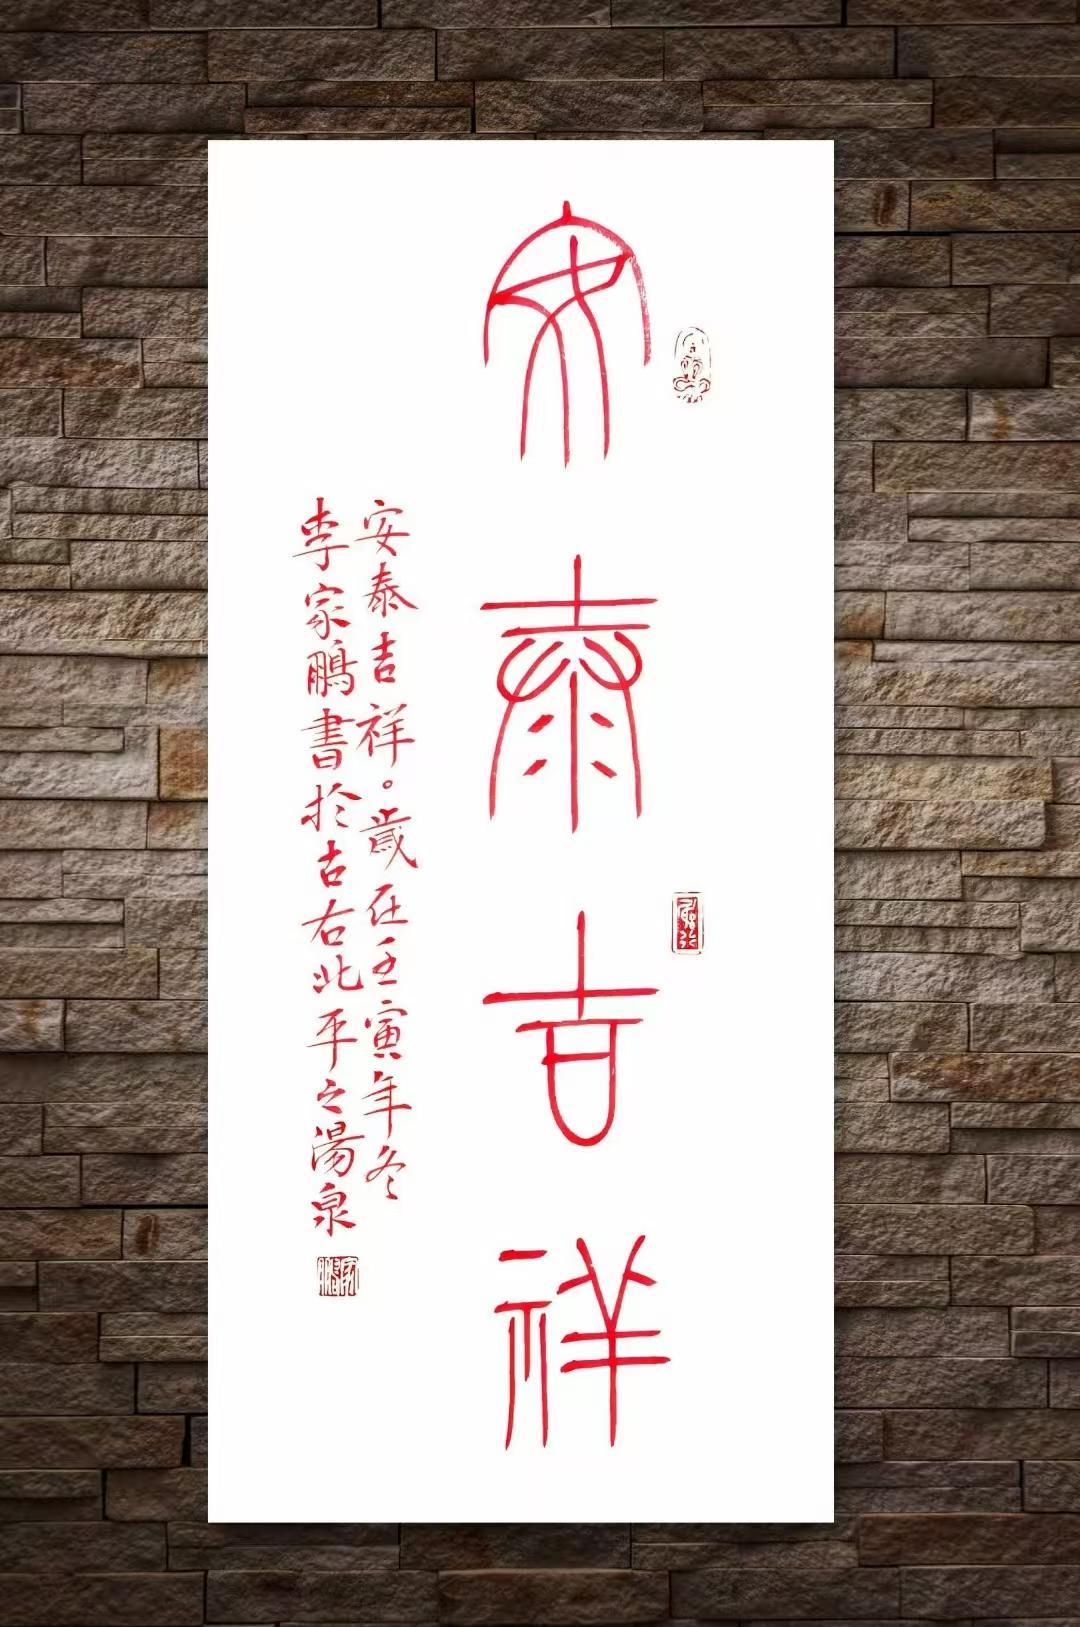 安泰吉祥
安泰吉祥。歲在壬寅年冬
李家鵬書於古右北平之湯泉